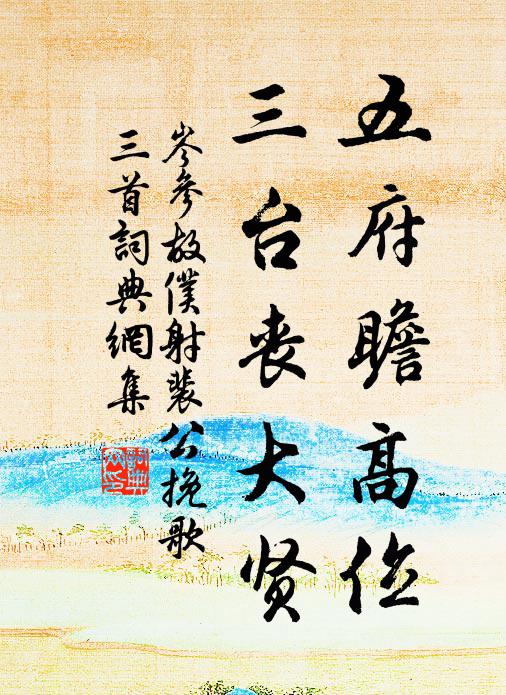 五府瞻高位
三台丧大贤
岑參故僕射裴公挽歌
三首詞典網集